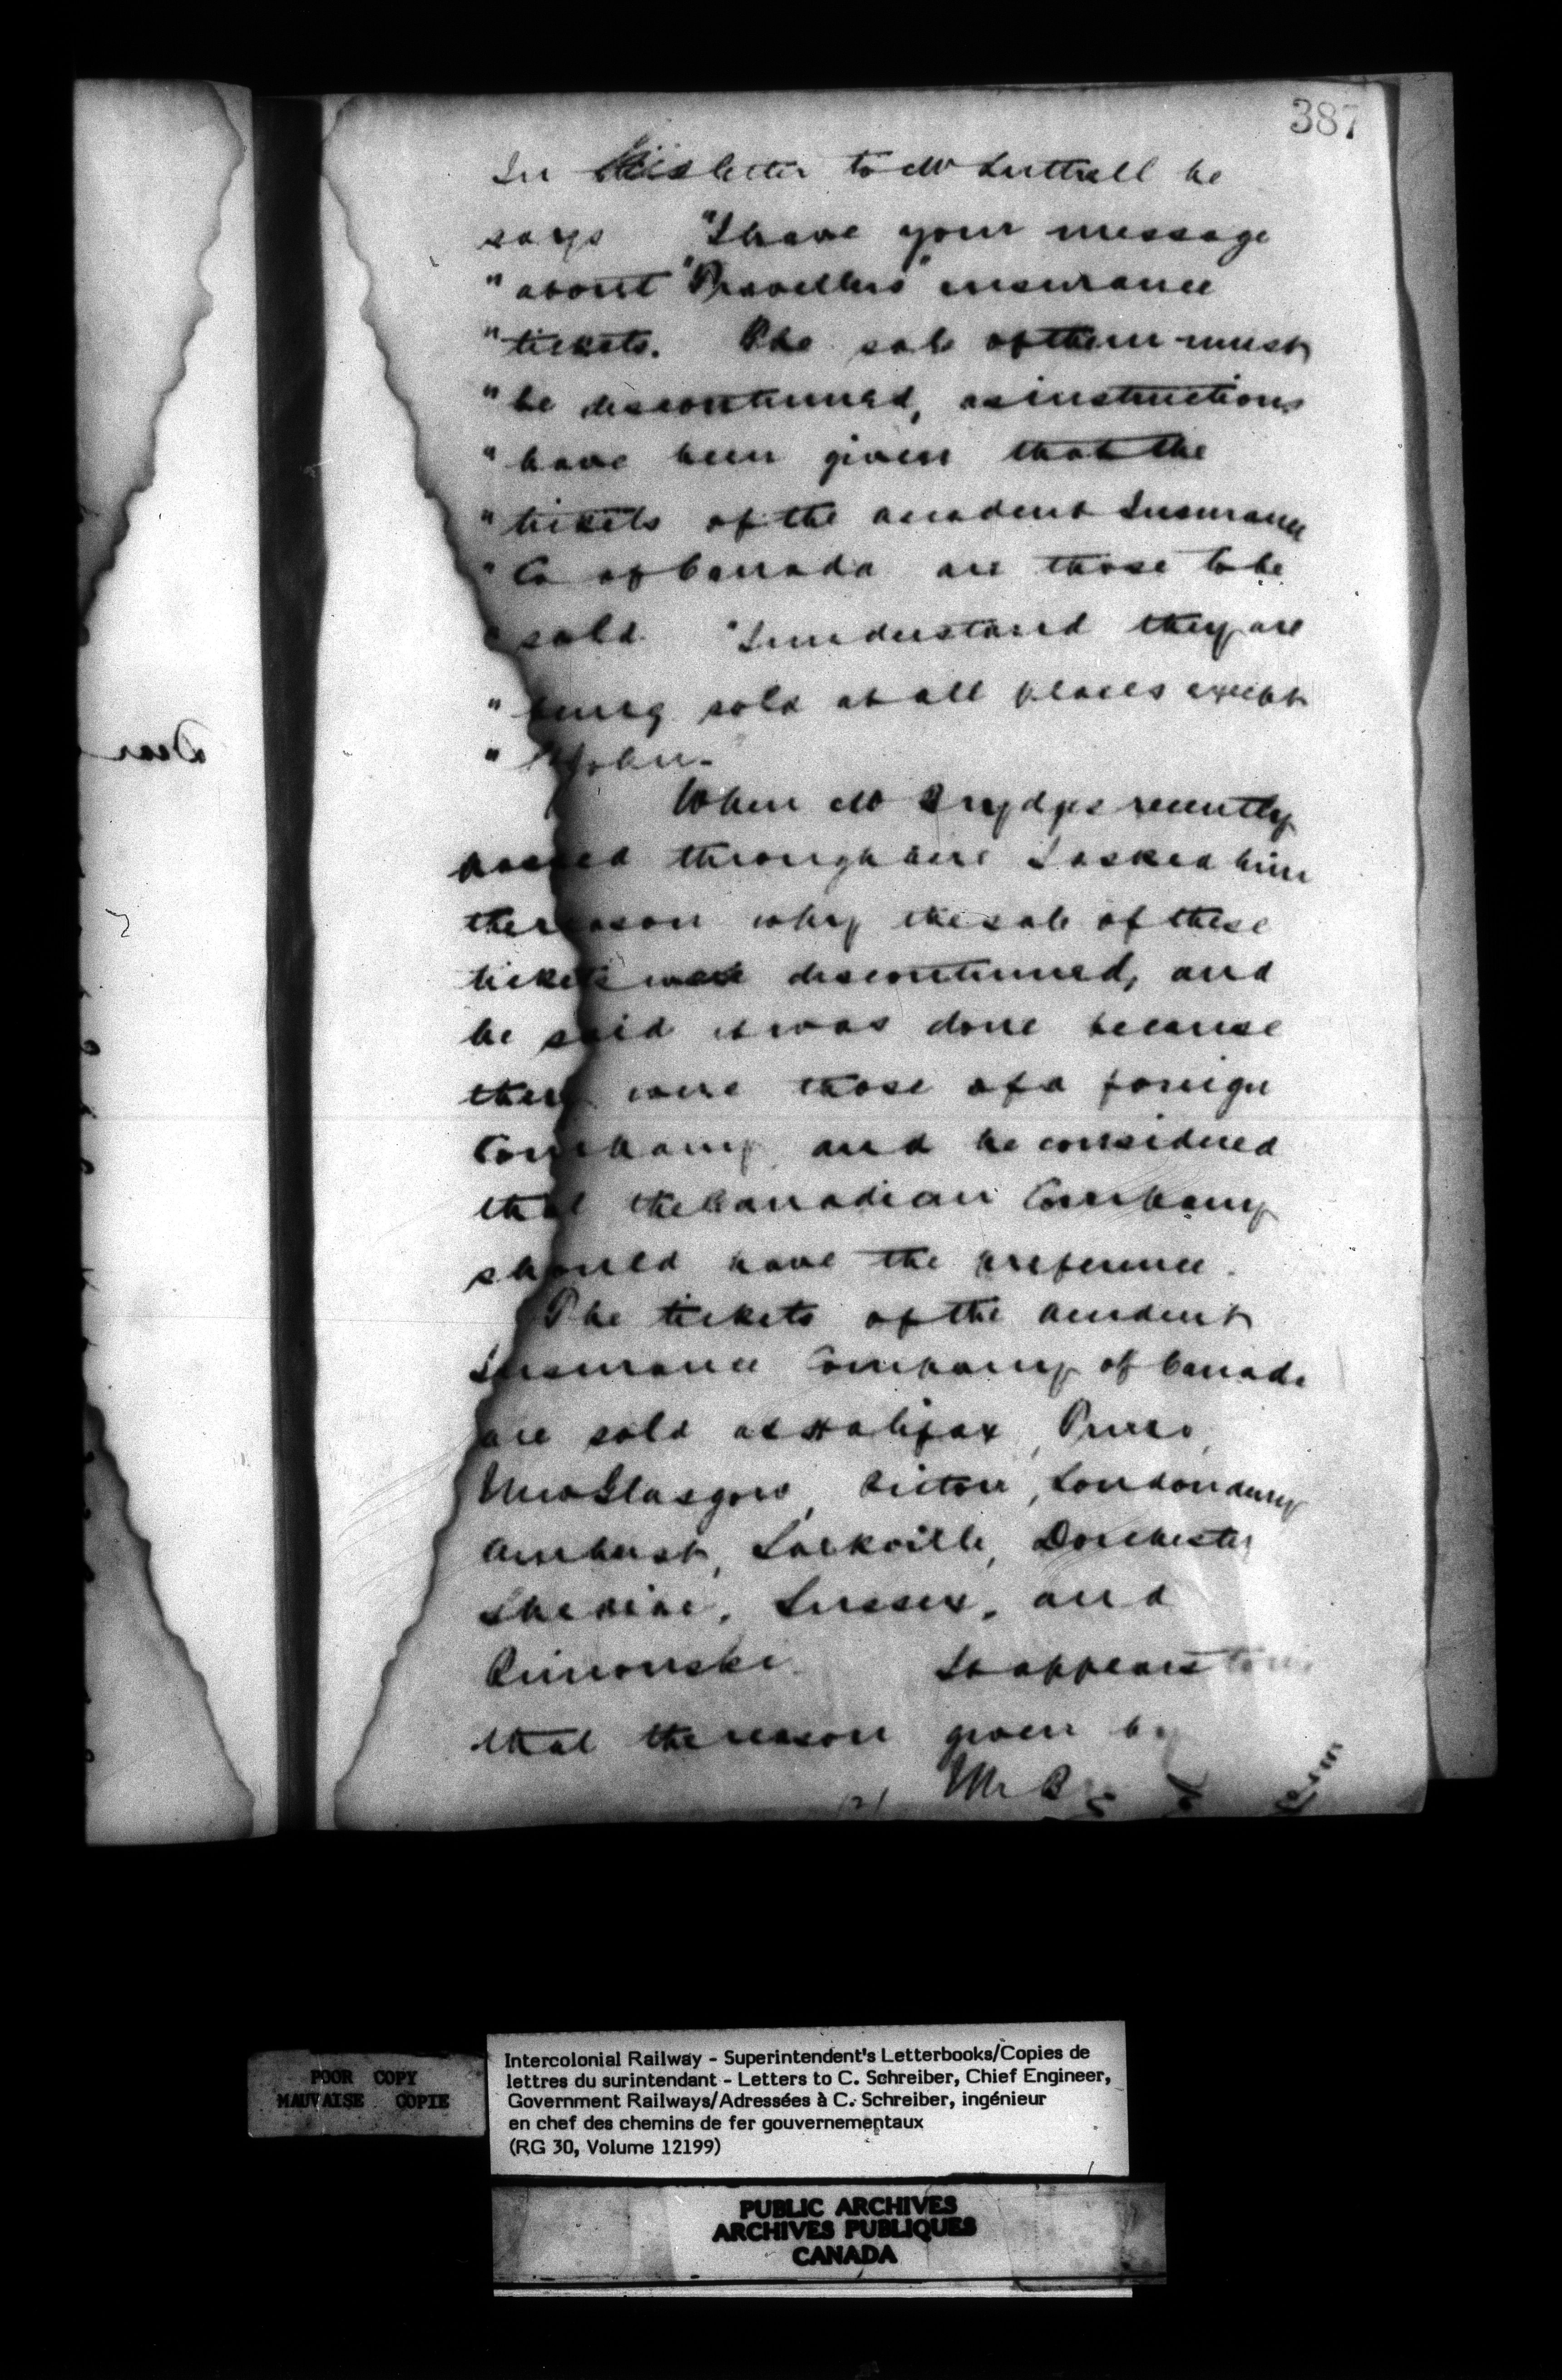 387
In his letter to Mr Luttrell he
says "I have your message
"about "Travellers" insurance
"tickets. The sale of them must
"be discontinued, as instructions
"have been given that the
"tickets of the accident Insurance
"Co of Canada are those to be
"sold. "I understand they are
"being sold at all places except
" St John.
When Mr Brydges recently
passed through here I asked him
the reason why the sale of these
tickets was discontinued, and
he said it was done because
they were those of a foreign
Company, and he considered
that the Canadian Company
should have the preference.
The tickets of the accident
Insurance Company of Canada
are sold at Halifax, Truro,
New Glasgow, Pictou, Londonderry
Amherst, Sackville, Dorchester
Shediac, Sussex, and
Rimouski. It appears to
that the reason given by
Mr B
Dear
POOR COPY
MAUVAISE COPIE
Intercolonial Railway - Superintendent's Letterbooks/Copies de
lettres du surintendant - Letters to C. Schreiber, Chief Engineer,
Government Railways/Adressées à C. Schreiber, ingénieur
en chef des chemins de fer gouvernementaux
(RG 30, Volume 12199)
PUBLIC ARCHIVES
ARCHIVES PUBLIQUES
CANADA